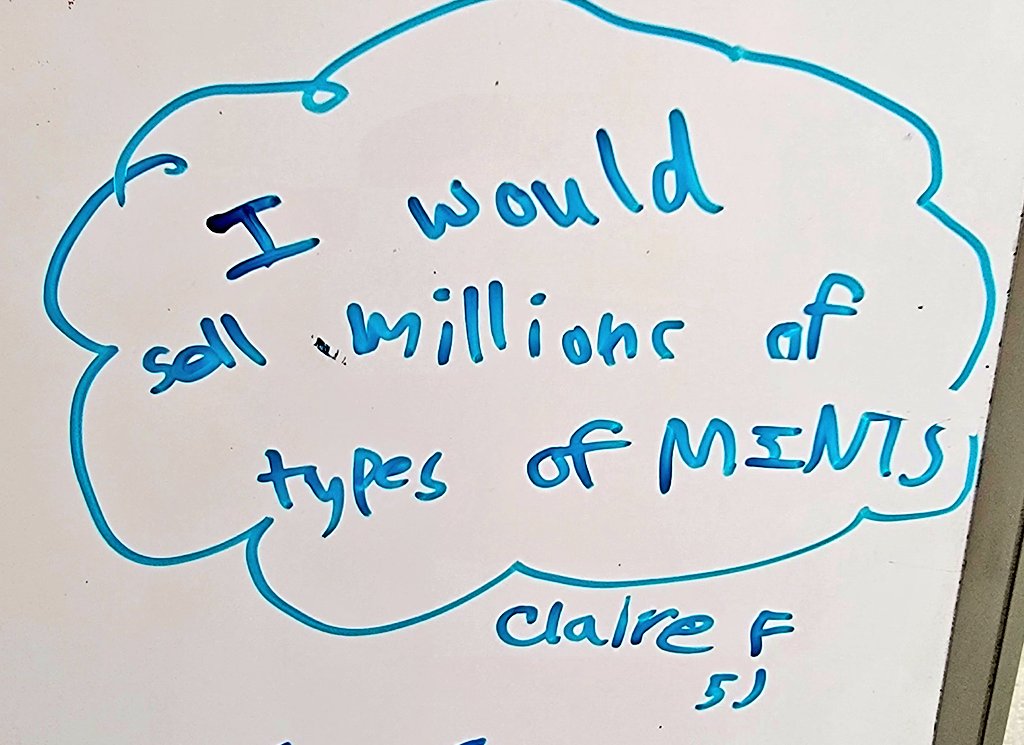 I would
sell millions of
types of MINTS
Claire F
5J